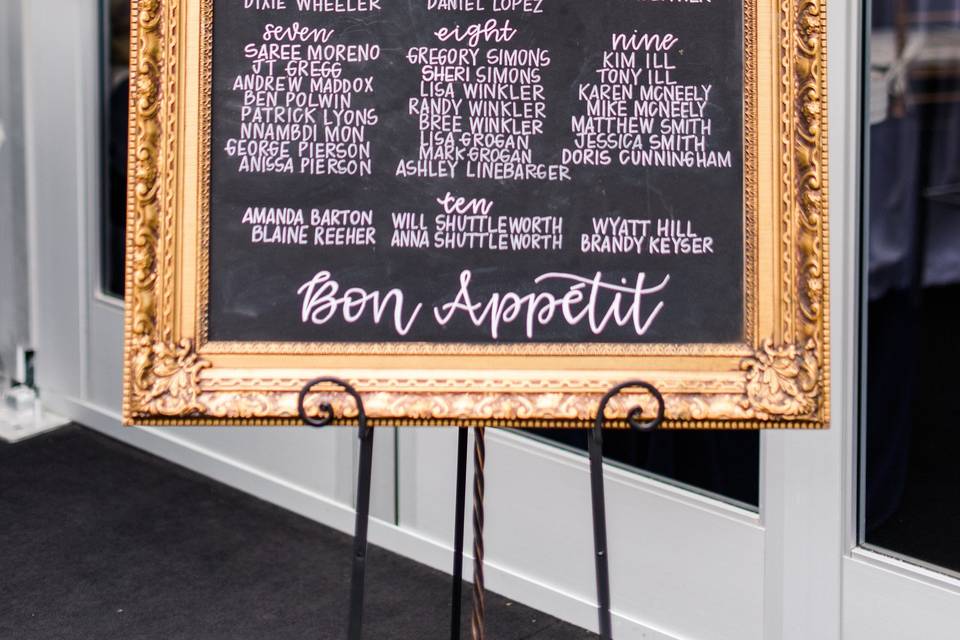 DIXIE WHEELER
DANIEL LOPEZ
seven
SAREE MORENO
JT GREGG
ANDREW MADDOX
BEN POLWIN
PATRICK LYONS
NNAMBDI MON
GEORGE PIERSON
ANISSA PIERSON
eight
GREGORY SIMONS
SHERI SIMONS
LISA WINKLER
RANDY WINKLER
BREE WINKLER
LISA GROGAN
MARK GROGAN
ASHLEY LINEBARGER
nine
KIM ILL
TONY ILL
KAREN MCNEELY
MIKE MCNEELY
MATTHEW SMITH
JESSICA SMITH
DORIS CUNNINGHAM
ten
AMANDA BARTON
BLAINE REEHER
WILL SHUTTLEWORTH
ANNA SHUTTLEWORTH
WYATT HILL
BRANDY KEYSER
Bon Appétit